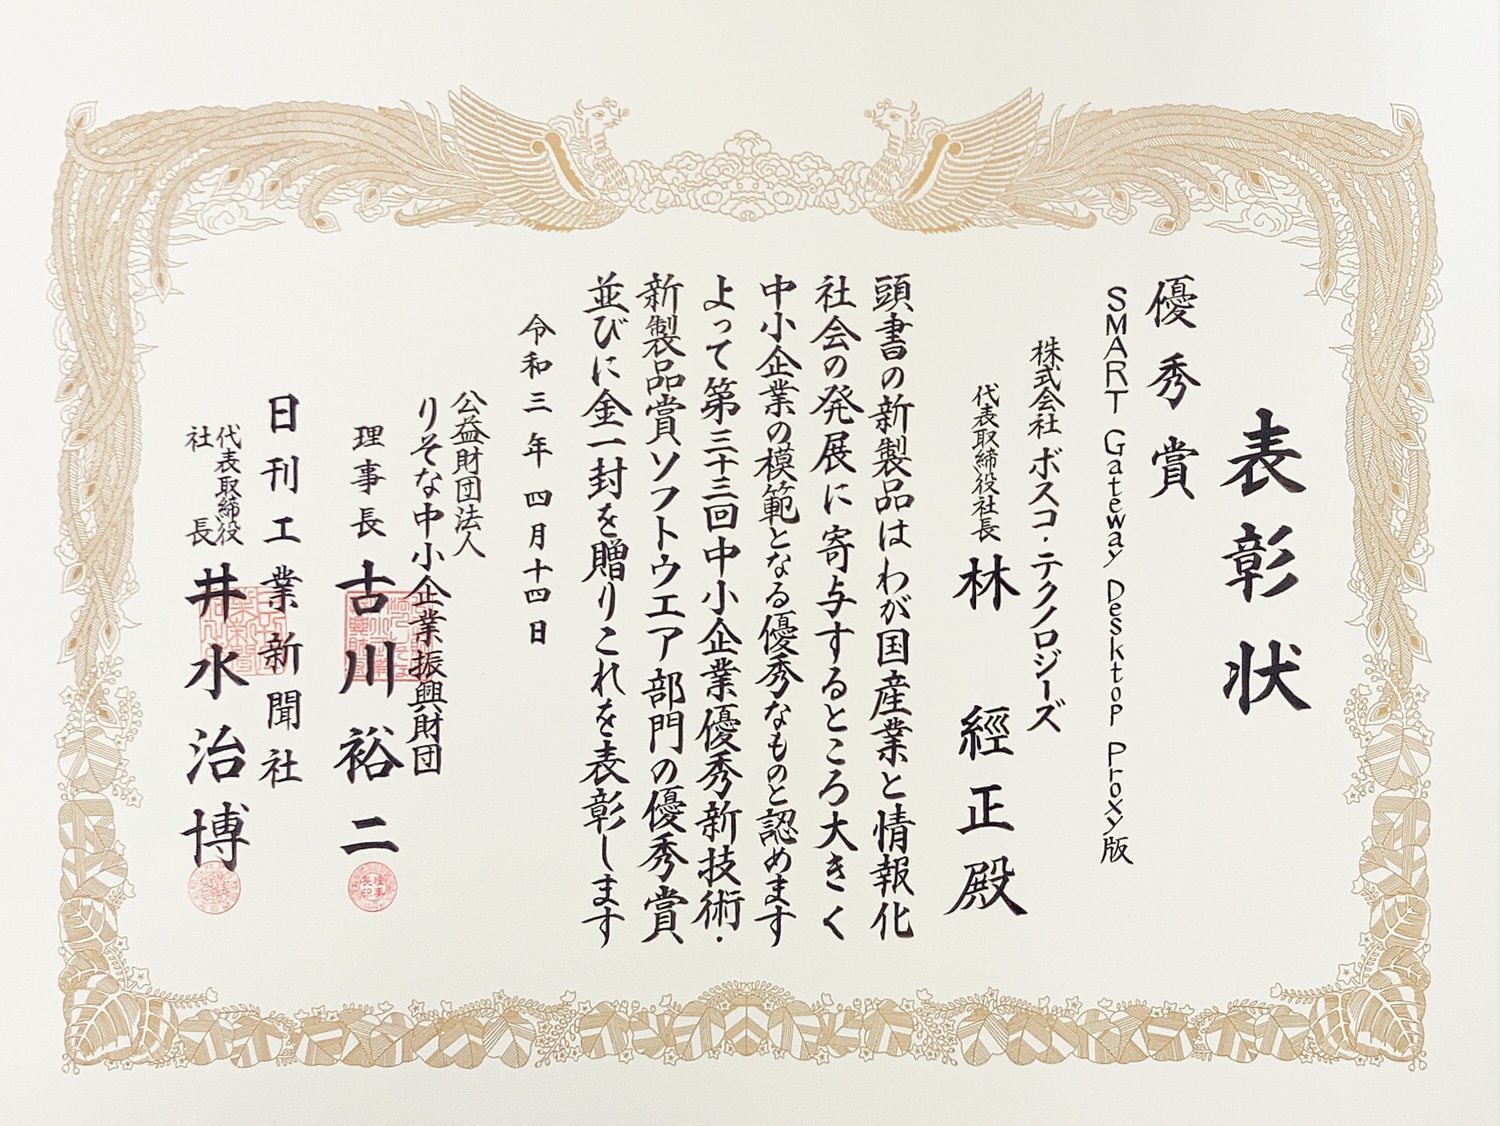 表彰状
優秀賞
SMART Gateway Desktop Proxy版
株式会社 ボスコ・テクノロジーズ
代表取締役社長 林 經正 殿
頭書の新製品はわが国産業と情報化
社会の発展に寄与するところ大きく
中小企業の模範となる優秀なものと認めます
よって第三十三回中小企業優秀新技術・
新製品賞ソフトウエア部門の優秀賞
並びに金一封を贈りこれを表彰します
令和三年 四月十四日
公益財団法人
りそな中小企業振興財団
理事長 古川裕二
日刊工業新聞社
代表取締役
社長 井水治博
理事長印